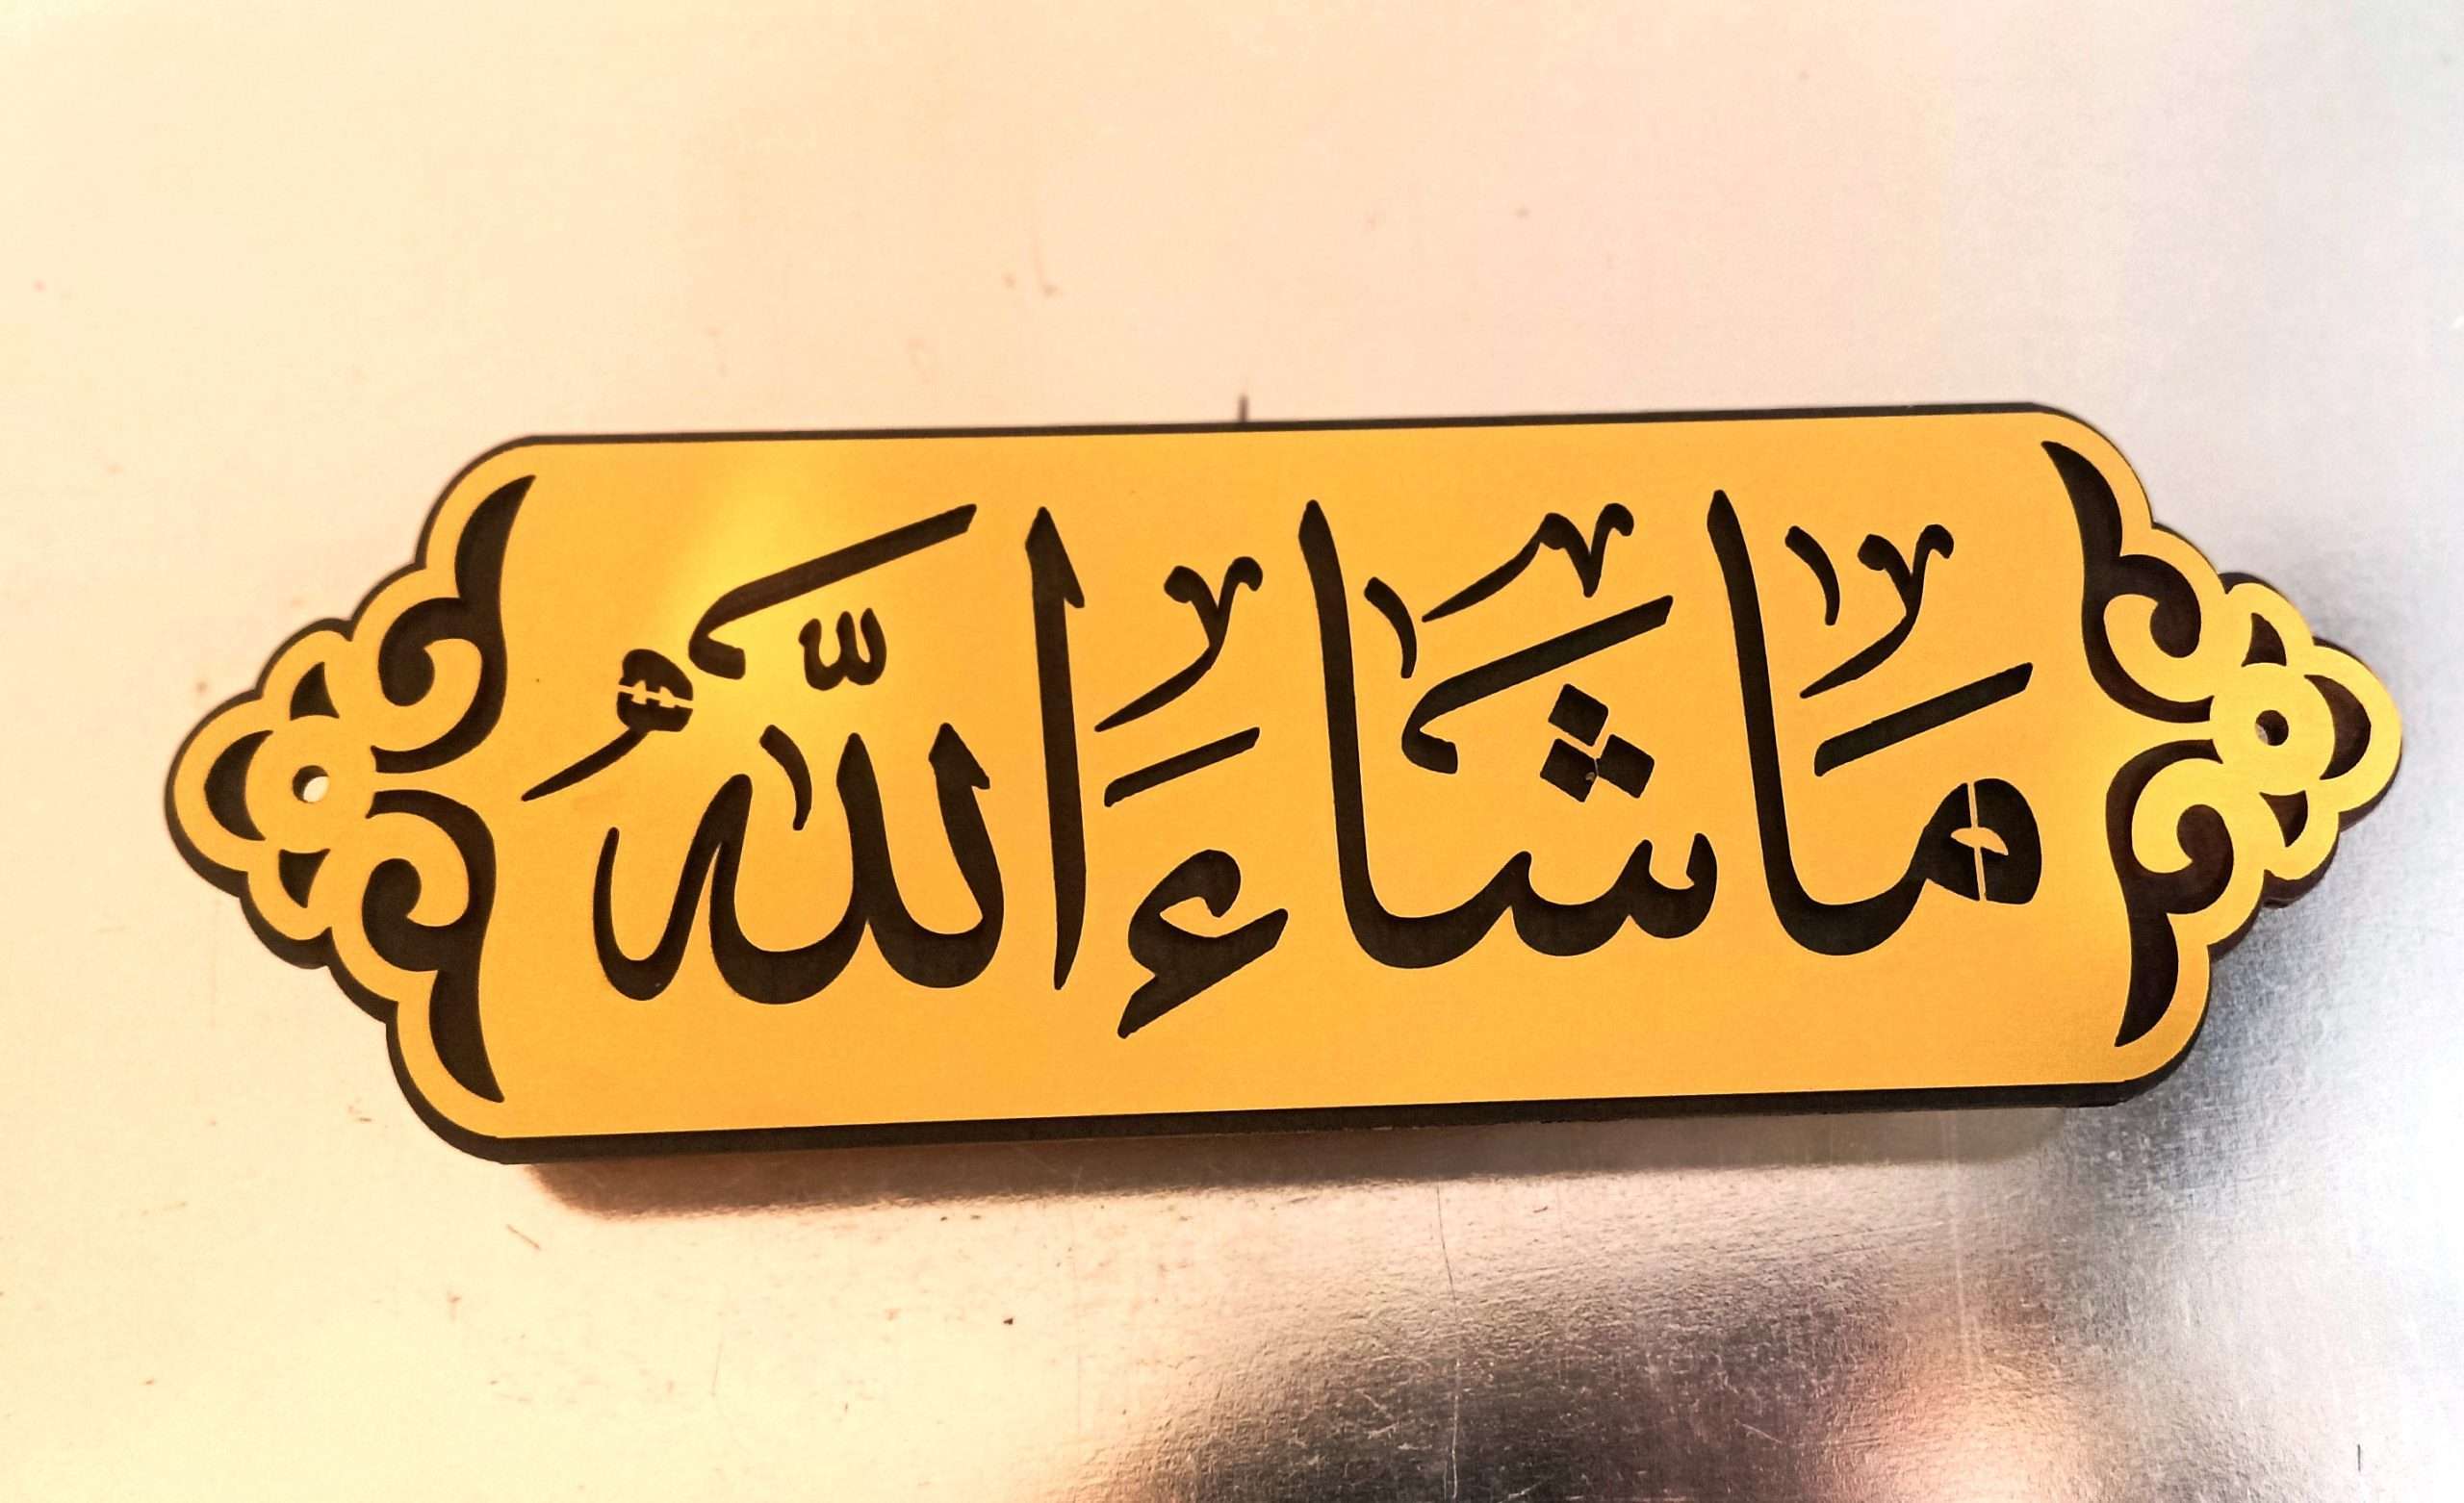 مَا شَاءَ اللّٰهُ